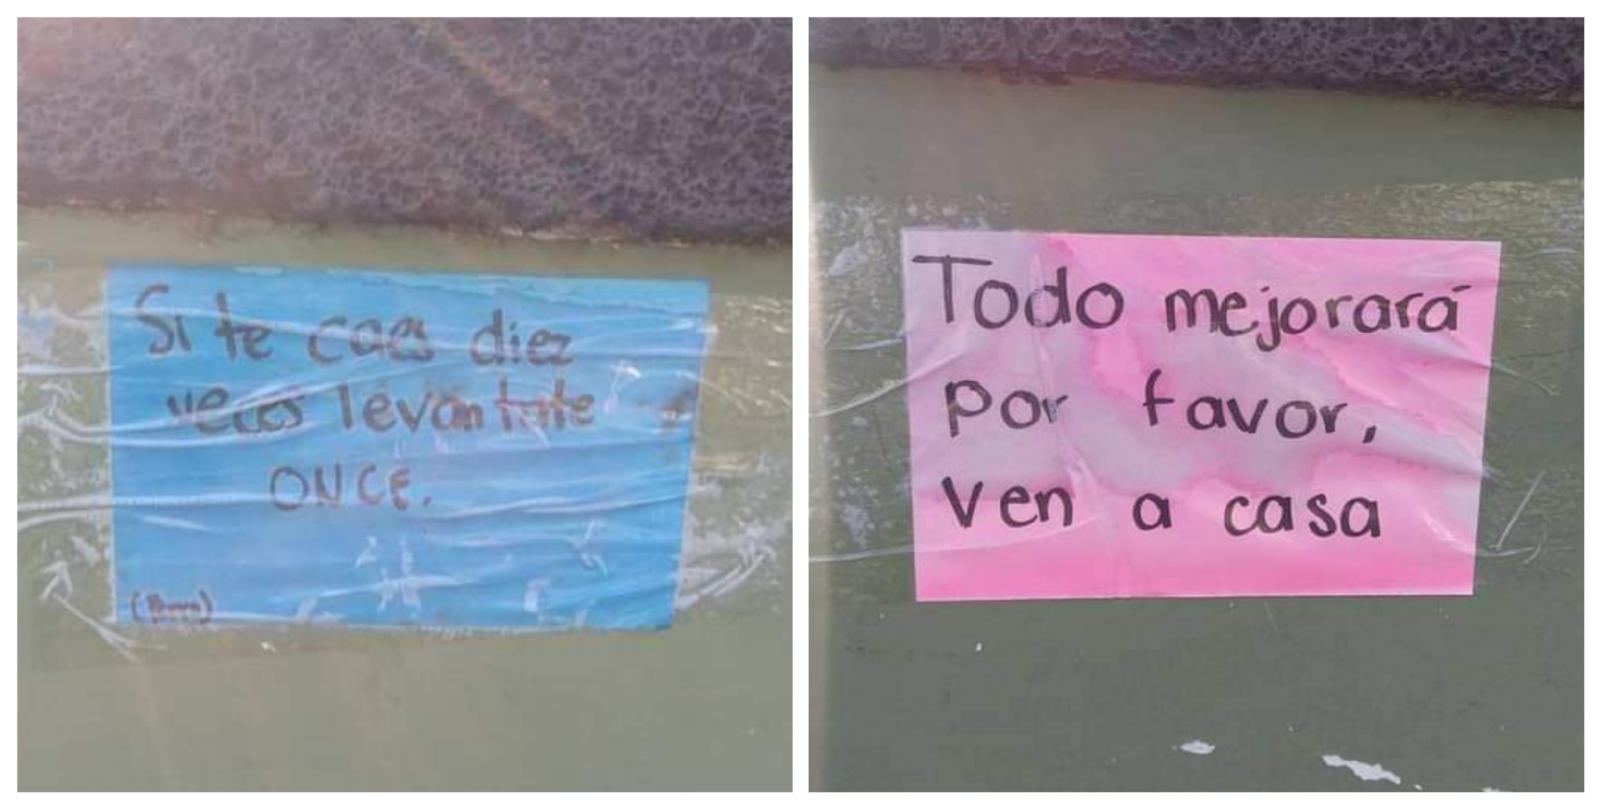 Si te caes diez
veces levantate
ONCE.
Todo mejorará
por favor,
ven a casa